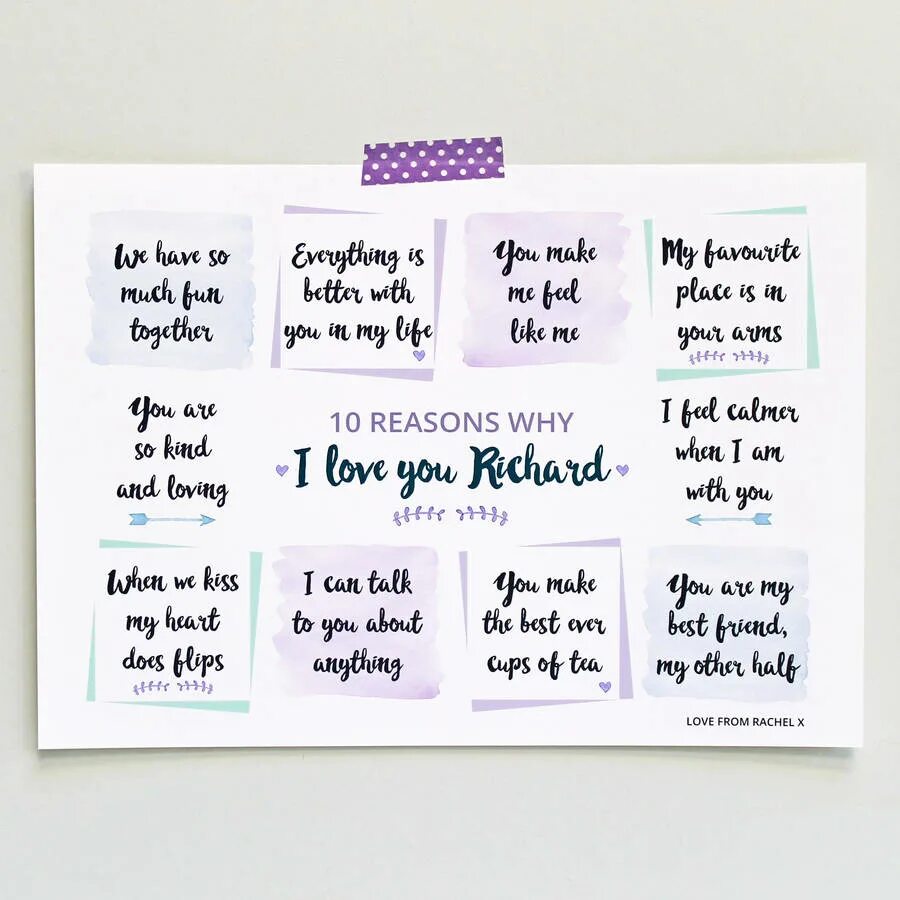 We have so
much fun
together
Everything is
better with
you in my life
You make
me feel
like me
My favourite
place is in
your arms
You are
so kind
and loving
10 REASONS WHY
I love you Richard
I feel calmer
when I am
with you
When we kiss
my heart
does flips
I can talk
to you about
anything
You make
the best ever
cups of tea
You are my
best friend,
my other half
LOVE FROM RACHEL X